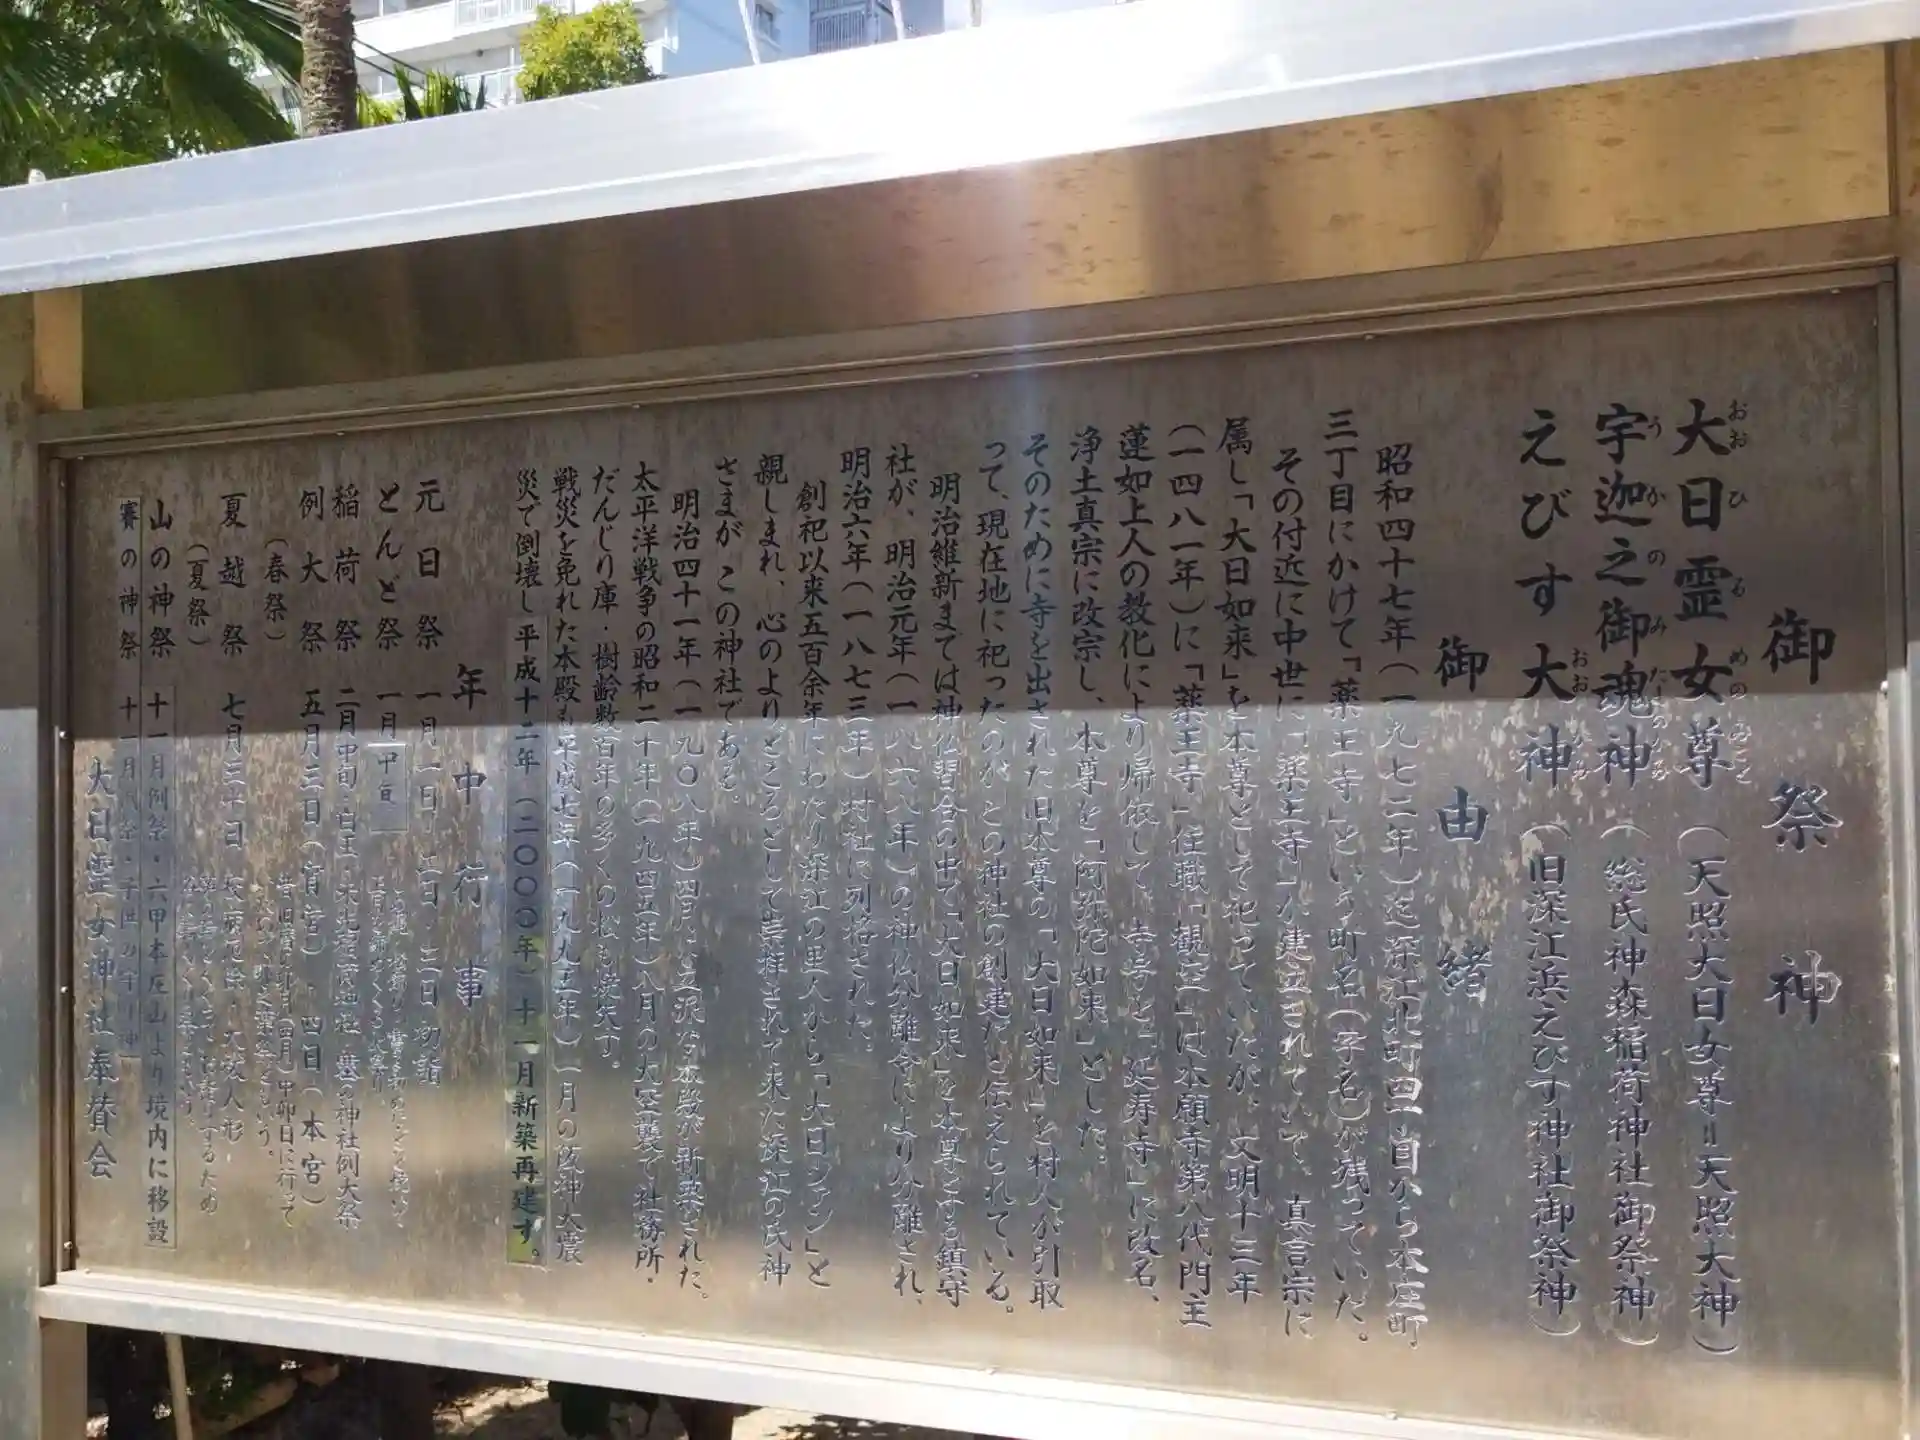 御祭神
大日霊女尊（天照大日女尊＝天照大神）
おおひるめのみこと
宇迦之御魂神（総氏神森稲荷神社御祭神）
うかのみたまのかみ
えびす大神（旧深江浜えびす神社御祭神）
おおかみ
御由緒
昭和四十七年（一九七二年）迄深江北町四丁目から本庄町
三丁目にかけて「薬王寺」という町名（字名）が残っていた。
その付近に中世に「薬王寺」が建立されていて、真言宗に
属し「大日如来」を本尊として祀っていたが、文明十三年
（一四八一年）に「薬王寺」住職「観空」は本願寺第八代門主
蓮如上人の教化により帰依して、寺号を「延寿寺」に改名、
浄土真宗に改宗し、本尊を「阿弥陀如来」とした。
そのために寺を出された旧本尊の「大日如来」を村人が引取
って、現在地に祀ったのがこの神社の創建だと伝えられている。
明治維新までは神仏習合の中で「大日如来」を本尊とする鎮守
社が、明治元年（一八六八年）の神仏分離令により分離され、
明治六年（一八七三年）村社に列格された。
創祀以来五百余年にわたり深江の里人から「大日ツァン」と
親しまれ、心のよりどころとして崇拝されて来た深江の氏神
さまが、この神社である。
明治四十一年（一九〇八年）四月には立派な本殿が新築された。
太平洋戦争の昭和二十年（一九四五年）八月の大空襲で社務所・
だんじり庫・樹齢数百年の多くの松も焼失す。
戦災を免れた本殿も平成七年（一九九五年）一月の阪神大震
災で倒壊し平成十二年（二〇〇〇年）十一月新築再建す。
年中行事
元日祭　一月一日、二日、三日初詣
とんど祭　一月中旬
稲荷祭　二月中旬・白玉・末光稲荷地社
例大祭　五月三日（宵宮）、四日（本宮）
（春祭）　昔旧暦
夏越祭　七月三十日
（夏祭）
山の神祭　十一月例祭・六甲本庄山より境内に移設
賽の神祭　十一月例祭・子供の守り神
大日霊女神社奉賛会